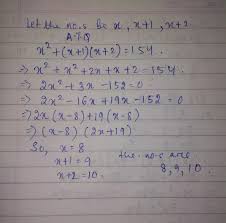 Let the no.s be x, x+1, x+2
A.T.Q
x² + (x+1)(x+2) = 154.
⇒ x² + x² + 2x + x + 2 = 154.
⇒ 2x² + 3x - 152 = 0
⇒ 2x² - 16x + 19x - 152 = 0
⇒ 2x (x-8) + 19 (x-8)
⇒ (x-8) (2x+19)
So, x = 8
x+1 = 9
x+2 = 10.
the no.s are
8, 9, 10.